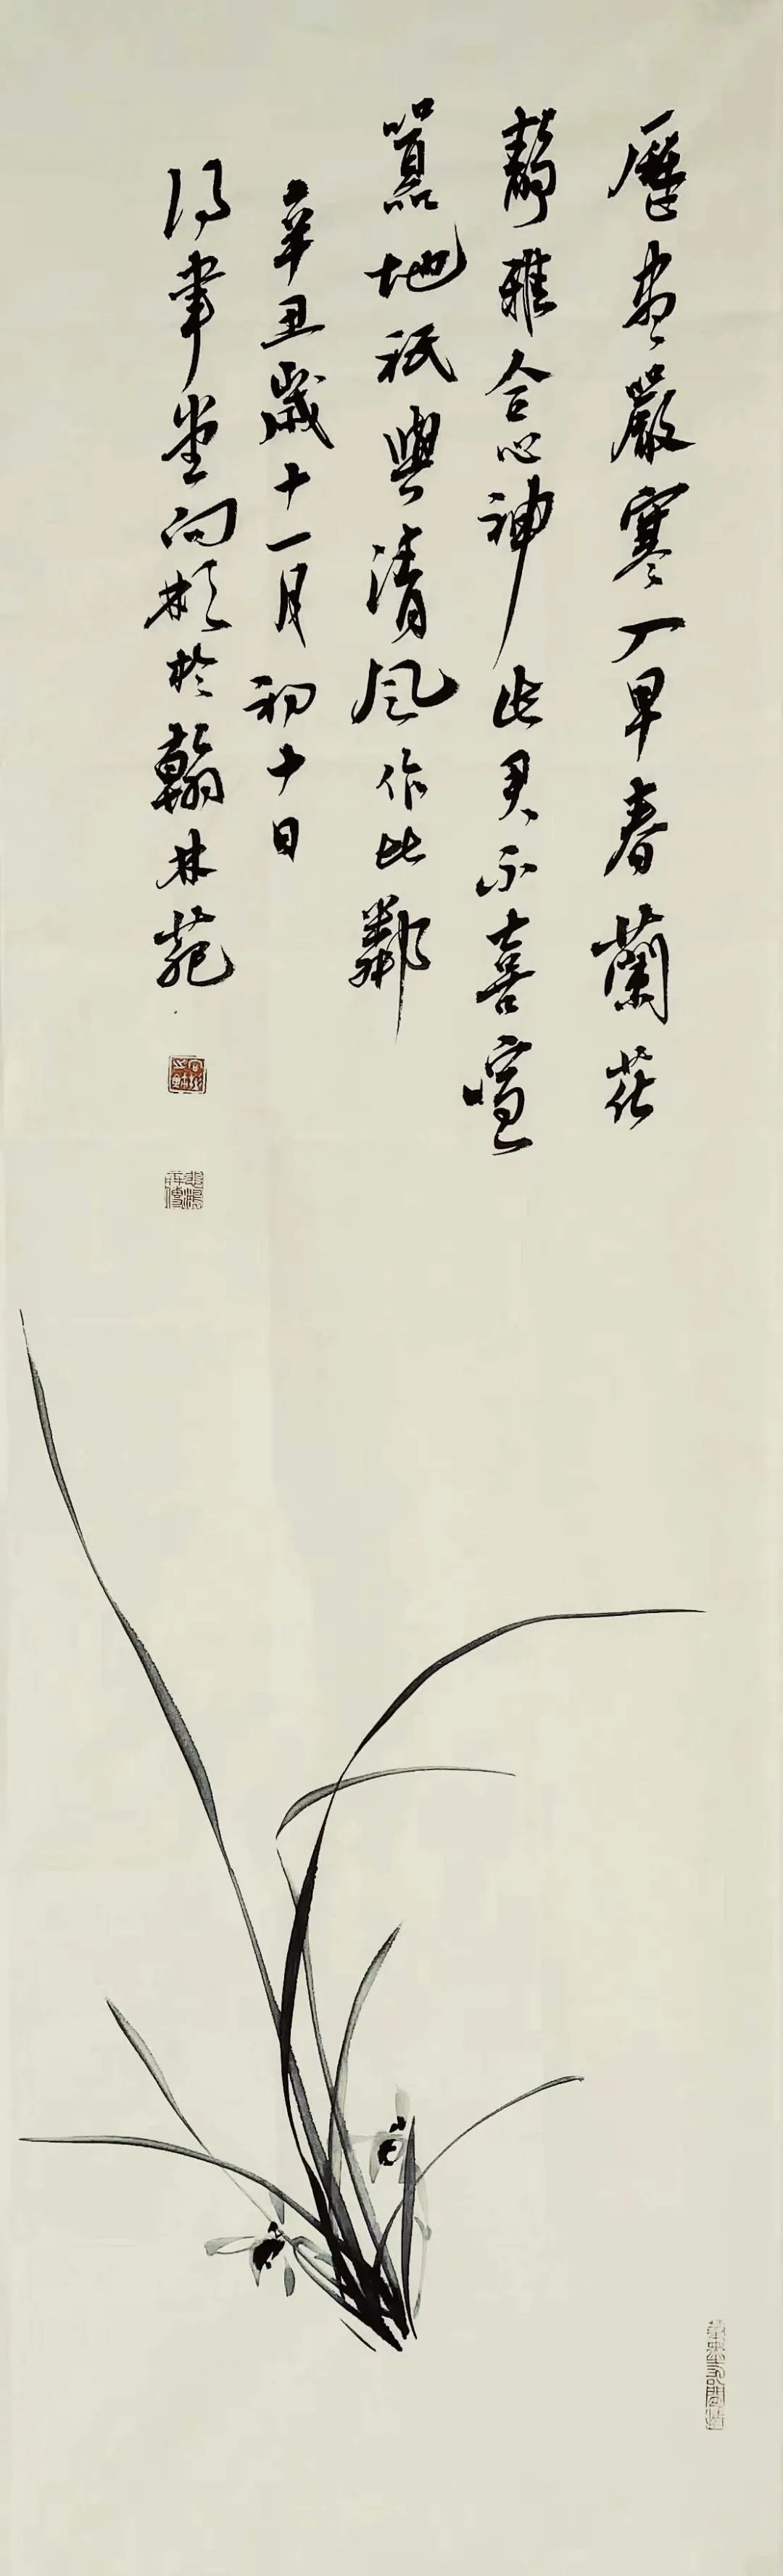 歷盡嚴寒入早春蘭花
靜雅合心神此君不喜喧
囂地祇與清風作比鄰
辛丑歲十一月初十日
得筆堂向於翰林苑
悲鴻再傳